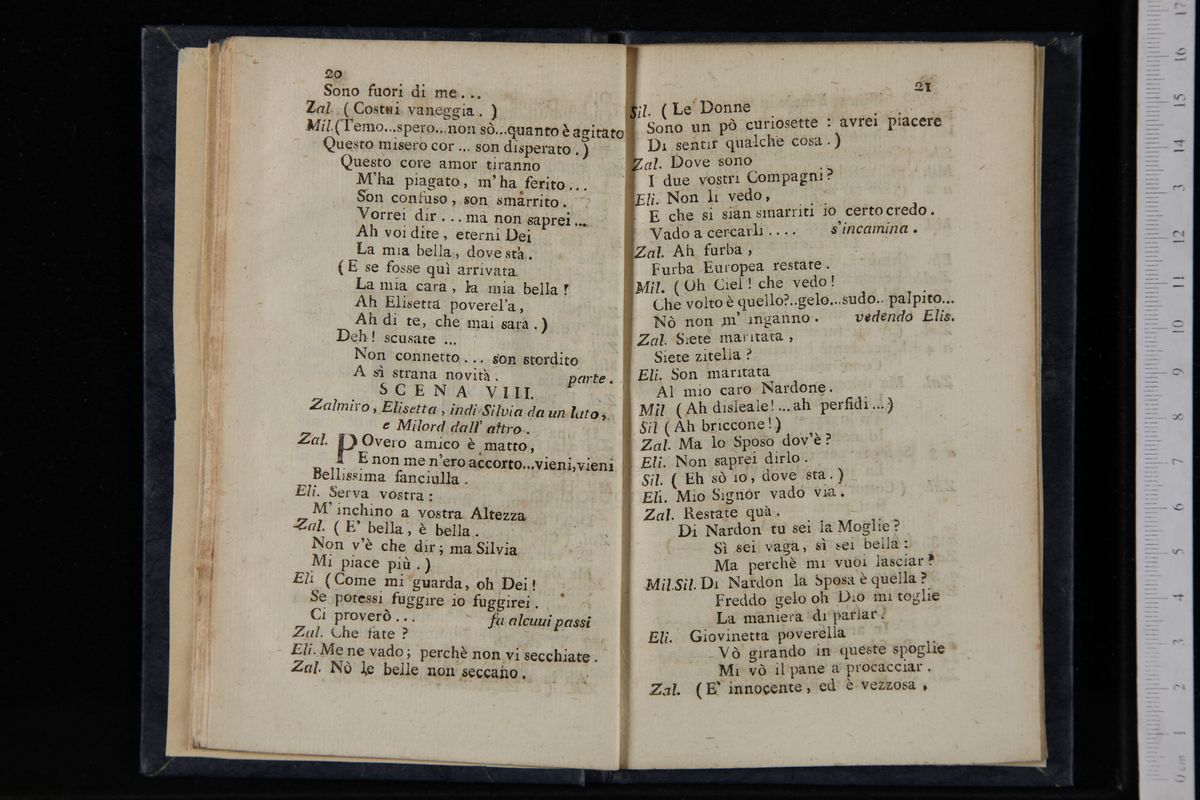 20
Sono fuori di me...
Zal. (Costui vaneggia. )
Mil.(Temo...spero...non sò...quanto è agitato
Questo misero cor ... son disperato.)
Questo core amor tiranno
M'ha piagato, m'ha ferito...
Son confuso, son smarrito.
Vorrei dir ... ma non saprei...
Ah voi dite, eterni Dei
La mia bella, dove stà.
(E se fosse quì arrivata
La mia cara, la mia bella?
Ah Elisetta poverel'a,
Ah di te, che mai sarà.)
Deh! scusate ...
Non connetto... son stordito
A sì strana novità. parte.
SCENA VIII.
Zalmiro, Elisetta, indi Silvia da un lato,
e Milord dall' altro.
Zal. POvero amico è matto,
E non me n'ero accorto...vieni,vieni
Bellissima fanciulla.
Eli. Serva vostra:
M' inchino a vostra Altezza
Zal. ( E' bella, è bella.
Non v'è che dir; ma Silvia
Mi piace più.)
Eli (Come mi guarda, oh Dei!
Se potessi fuggire io fuggirei.
Ci proverò... fa alcuui passi
Zal. Che fate ?
Eli. Me ne vado; perchè non vi secchiate.
Zal. Nò le belle non seccano.
21
Sil. ( Le Donne
Sono un pò curiosette : avrei piacere
Di sentir qualche cosa.)
Zal. Dove sono
I due vostri Compagni?
Eli. Non li vedo,
E che si sian smarriti io certo credo.
Vado a cercarli.... s'incamina.
Zal. Ah furba,
Furba Europea restate.
Mil. ( Oh Ciel! che vedo!
Che volto è quello?..gelo...sudo..palpito...
Nò non m' inganno. vedendo Elis.
Zal. Siete maritata,
Siete zitella ?
Eli. Son maritata
Al mio caro Nardone.
Mil (Ah disleale!...ah perfidi...)
Sil (Ah briccone!)
Zal. Ma lo Sposo dov'è?
Eli. Non saprei dirlo.
Sil. ( Eh sò io, dove sta.)
Eli. Mio Signor vado via.
Zal. Restate quà.
Di Nardon tu sei la Moglie?
Sì sei vaga, sì sei bella:
Ma perchè mi vuoi lasciar?
Mil.Sil. Di Nardon la Sposa è quella?
Freddo gelo oh Dio mi toglie
La maniera di parlar.
Eli. Giovinetta poverella
Vò girando in queste spoglie
Mi vò il pane a procacciar.
Zal. (E' innocente, ed è vezzosa,
17
16
15
14
13
12
11
10
9
8
7
6
5
4
3
2
1
0 cm